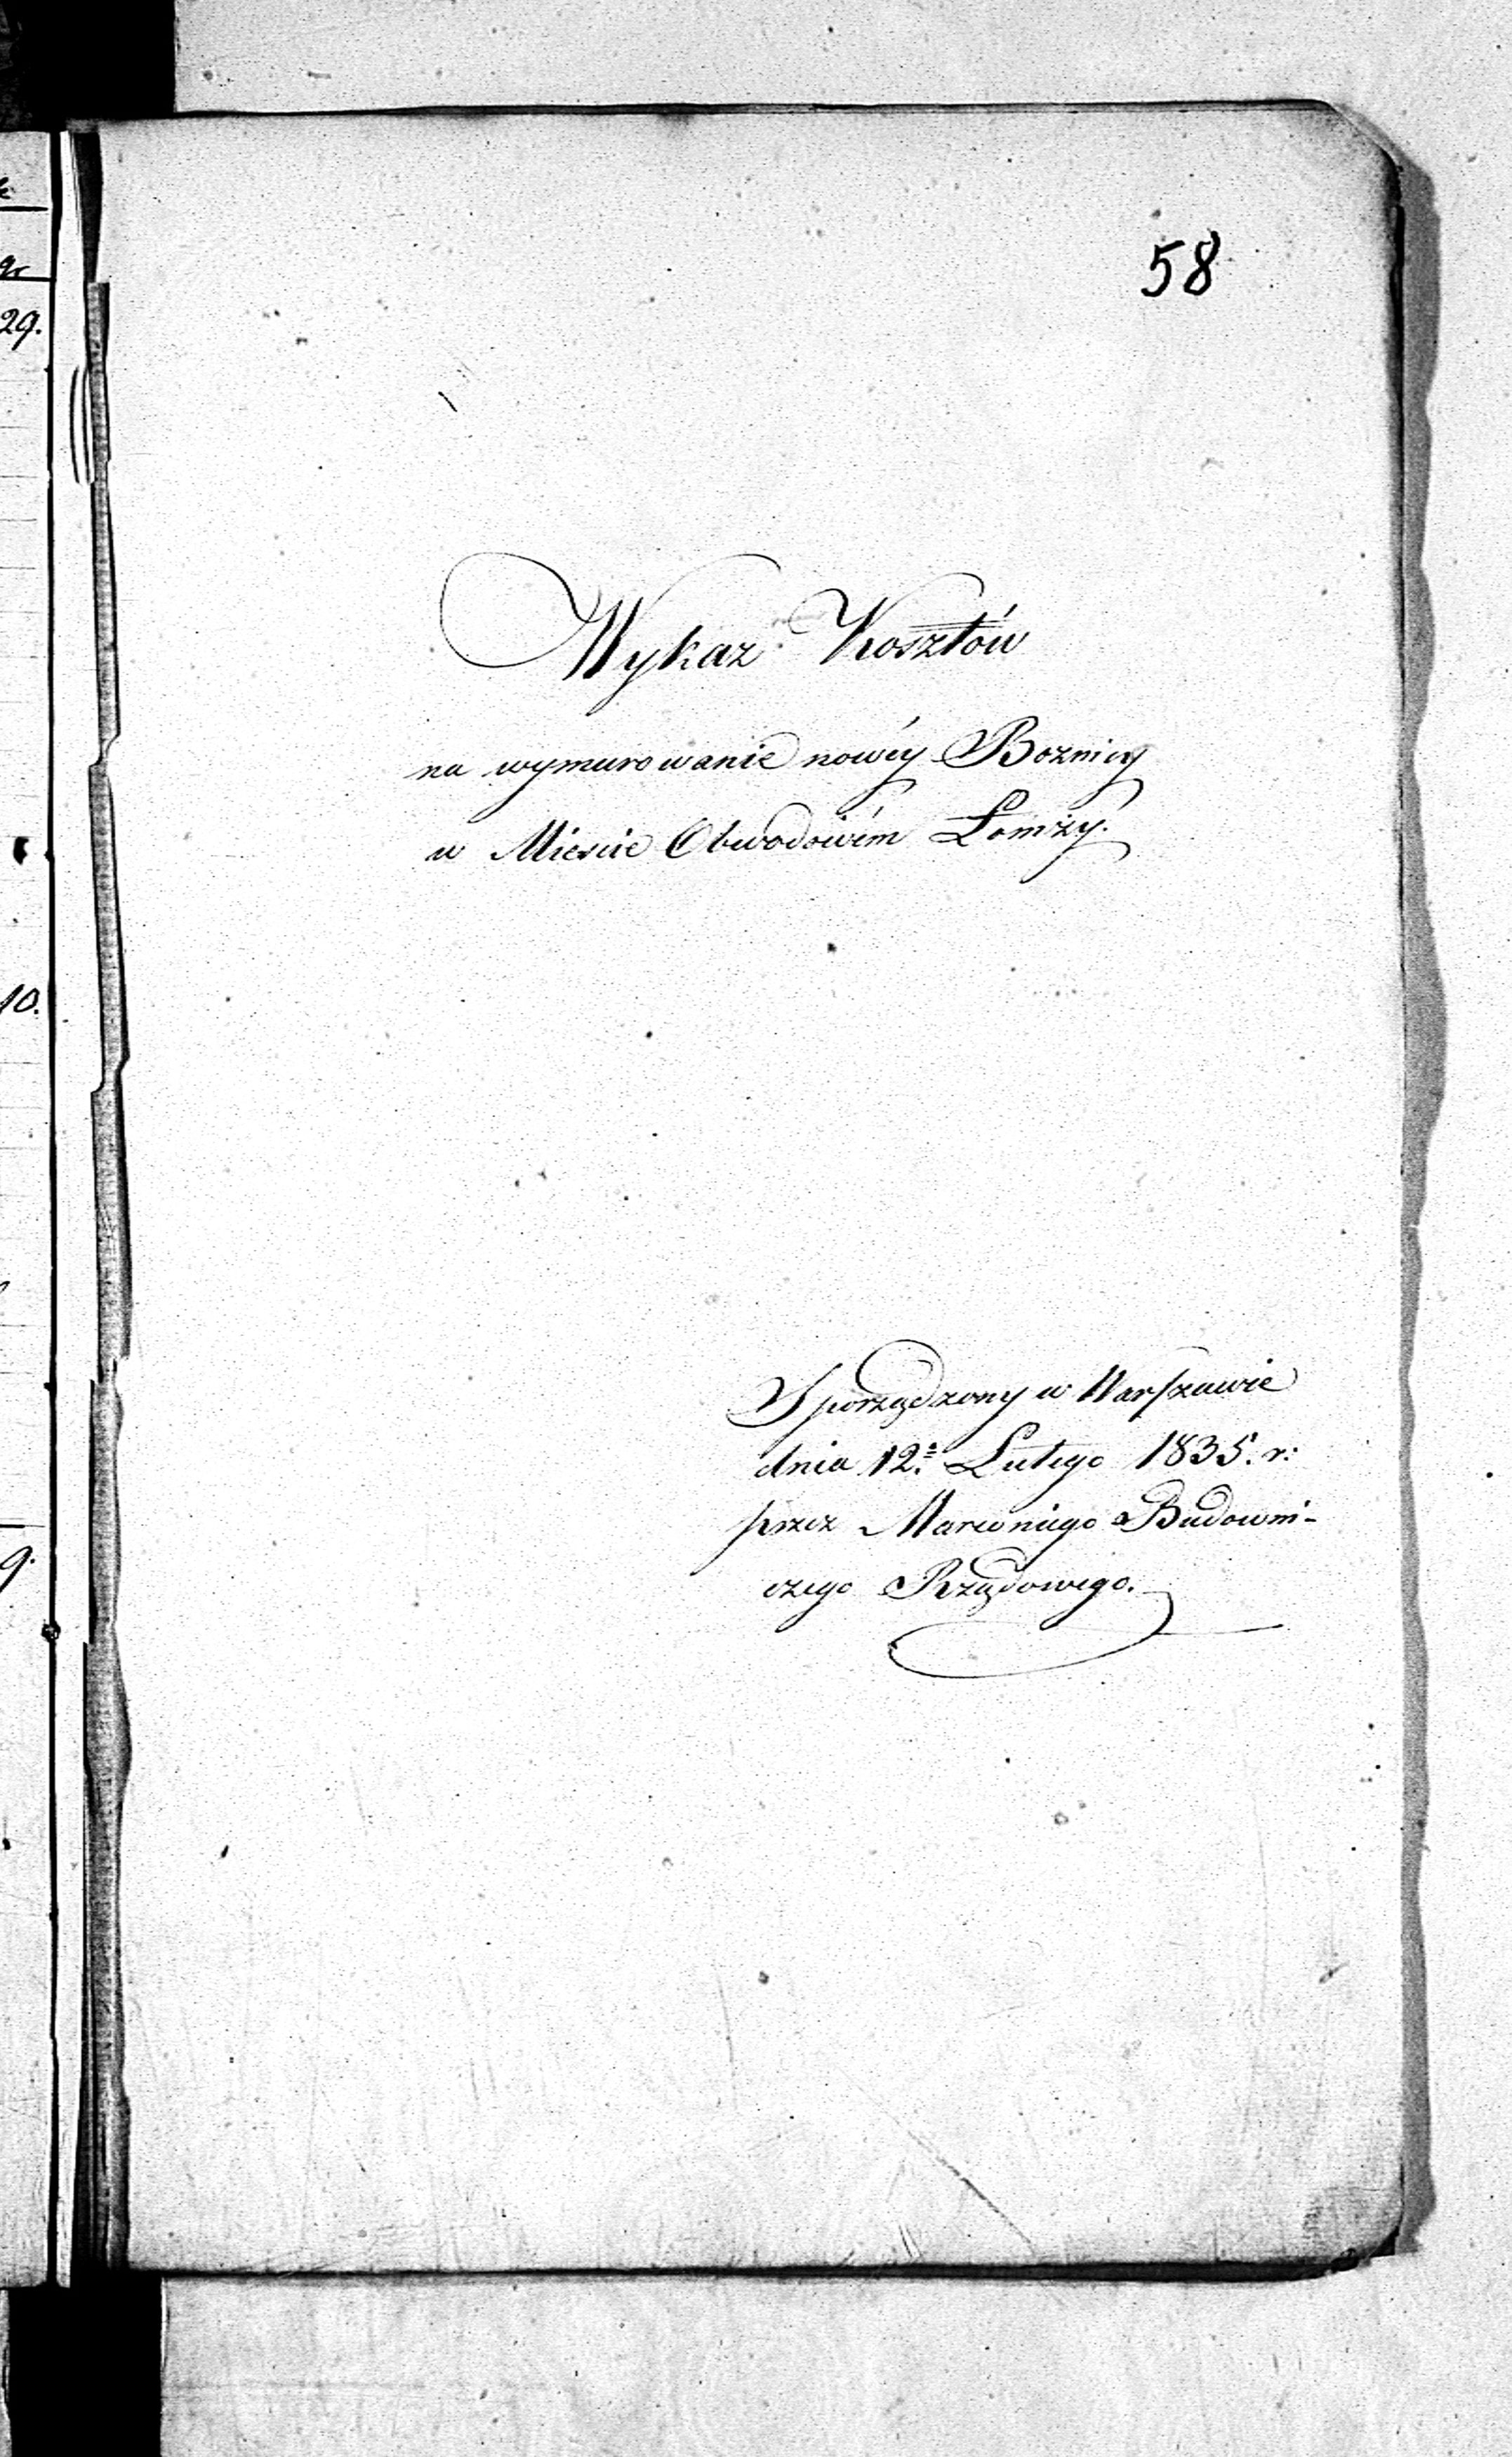 58
Wykaz Kosztów
na wymurowanie nowéy Boznicy
w Miescie Obwodowém Łomży.
Sporządzony w Warszawie
dnia 12. Lutego 1835. r:
przez Marconiego Budowni-
czego Rządowego.
gr
29.
10.
9.